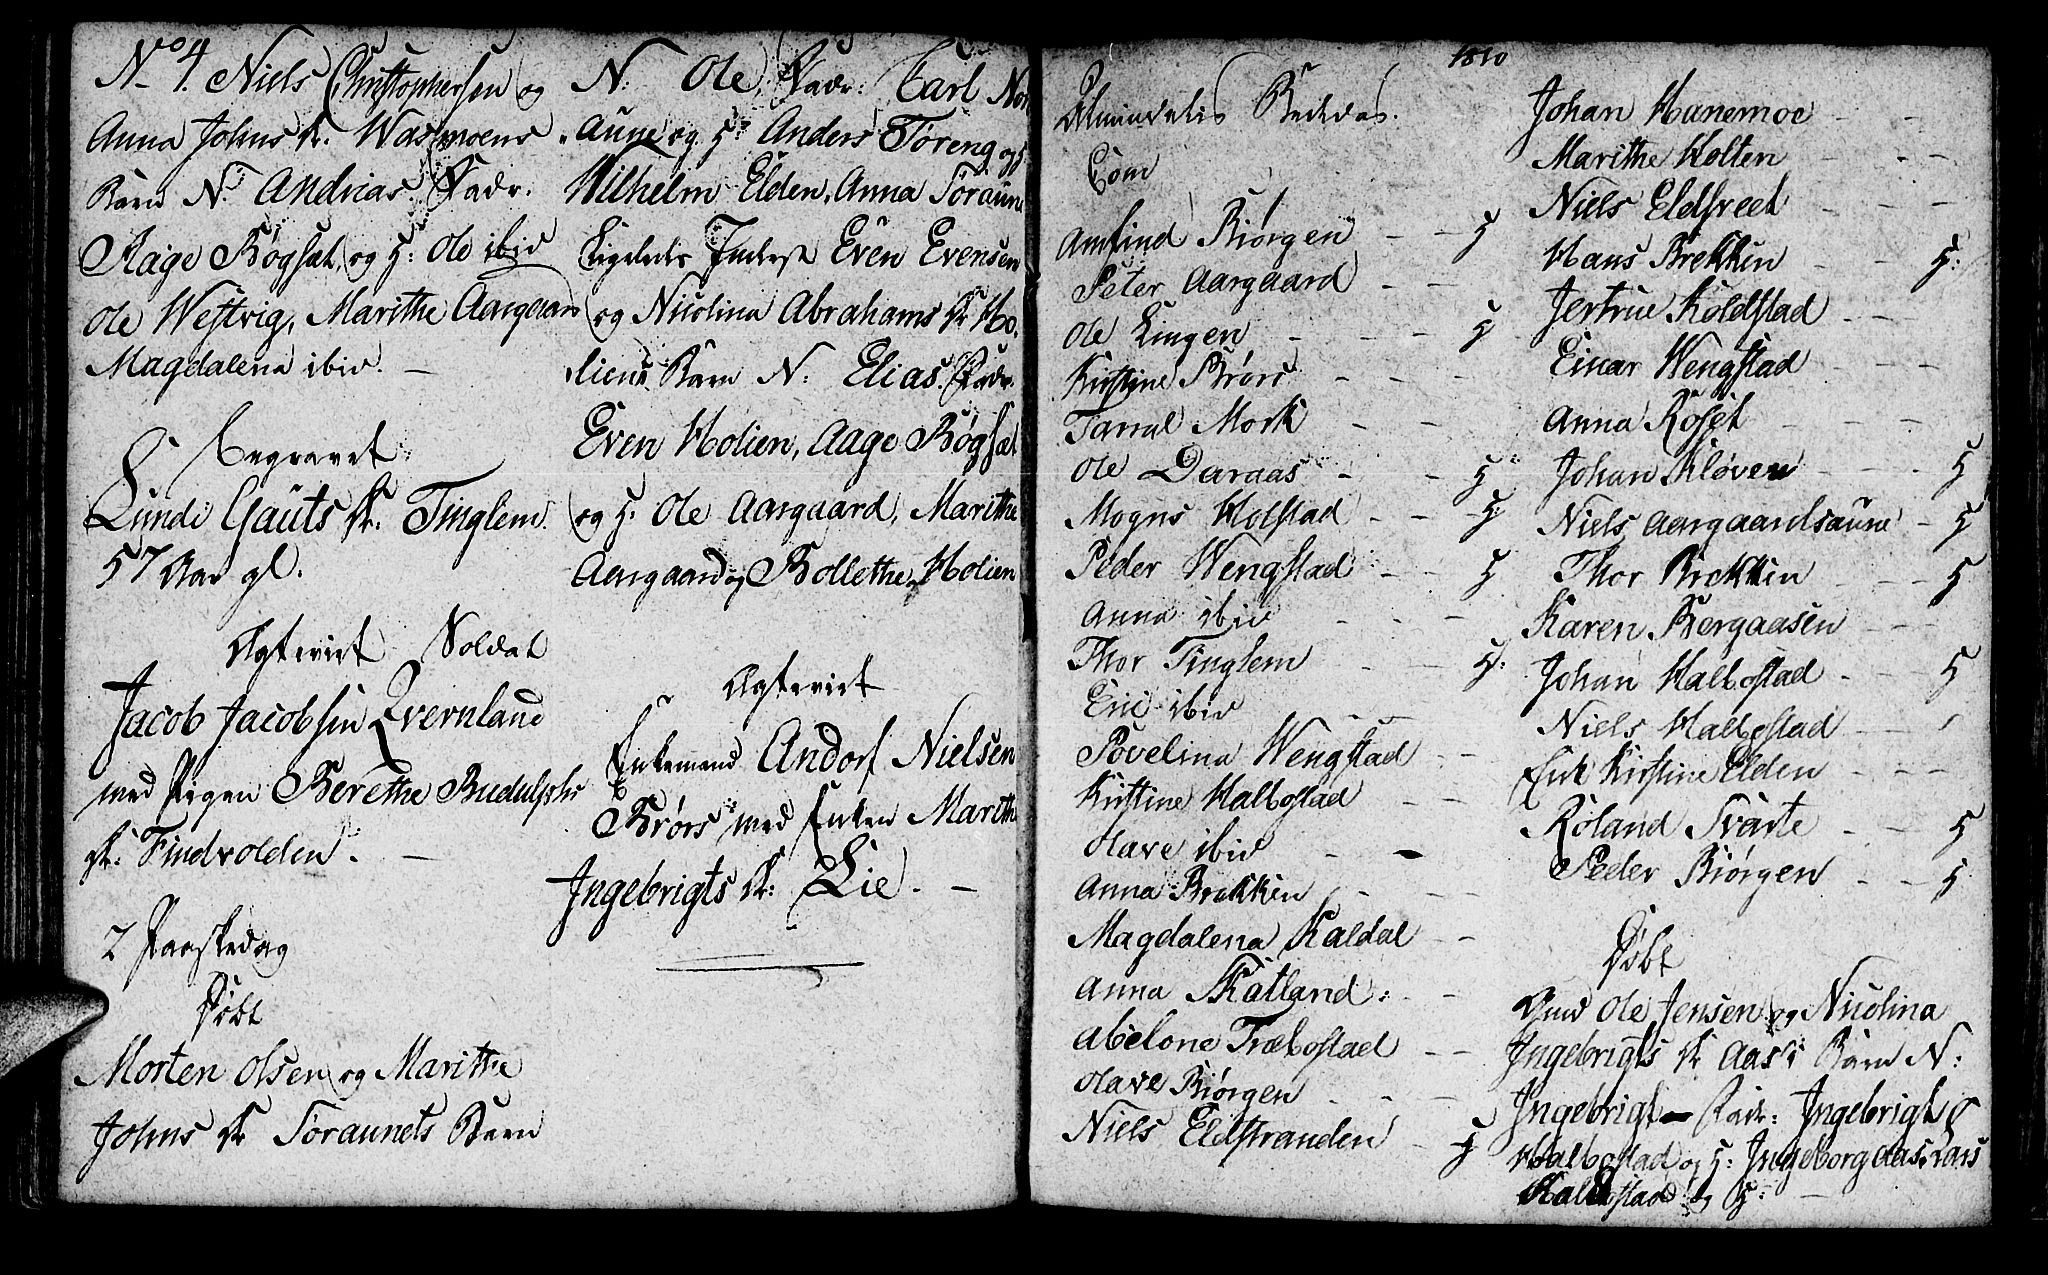 No 4. Niels Christophersen og
Anna Johns dr. Wasmoens
Barn N. Andreas. Fadr.
Aage Bøgset, og H: Ole ibid
Ole Westvig, Marithe Aargaard
Magdalena ibid. —
Begravet
Lunde Gauts dr. Tinglem.
57 Aar gl.
Ægteviet Soldat
Jacob Jacobsen Qvernland
med Pigen Berethe Budulphs
dr: Findvolden. —
2 Paaskedag
Døbt
Morten Olsen og Marithe
Johns dr Søraunets Barn
N: Ole, Fadr: Carl Nor
aune og H: Anders Søreng og H
Wilhelm Elden, Anna Søraune
Ligeledes Inderst Even Evensen
og Nicolina Abrahams dr Ho,
liens Barn N: Elias. Fadr.
Even Holien, Aage Bøgset
og H: Ole Aargaard, Marithe
Aargaard og Bollethe Holien
Ægteviet
Enkemand Andors Nielsen
Brørs med Enken Marith
Ingebrigts dr: Lie. —
1810
Almindelig Bededag.
Com
Amfind Biørgen - - H
Peter Aargaard - -
Ole Lingen - - H
Kirstine Brørs - - -
Tarral Mork - -
Ole Daraas - - H
Mogns Holstad - - H
Peder Wengstad - - H
Anna ibid - - -
Thor Tinglem - - H.
Eric ibid
Povelina Wengstad - -
Kirstine Halbostad - -
Olave ibid - -
Anna Brekken - - -
Magdalena Kaldal - -
Anna Skatland. - -
Abelone Træbostad - -
Olave Biørgen - - -
Niels Eldstranden - - H
Johan Hanemoe - -
Marithe Holten - - -
Niels Eldsreet - - -
Hans Brekken - - H:
Jertrue Koldstad - - -
Einar Wengstad - - -
Anna Roset - - - -
Johan Kløven - - - H
Niels Aargaardsaune - H
Thor Brekken - - - H
Karen Bergaasen - - -
Johan Halbostad - - H
Niels Halbostad - -
Enk Kirstine Elden - - -
Roland Svarte - - H
Peder Biørgen - - H
Døbt
Ole Jensen og Nicolina
Ingebrigts dr Aas's Barn N:
Ingebrigt — Fadr: Ingebrigt
Halbostad og H: Ingeborg Aas, Lars
Halbostad og H: —